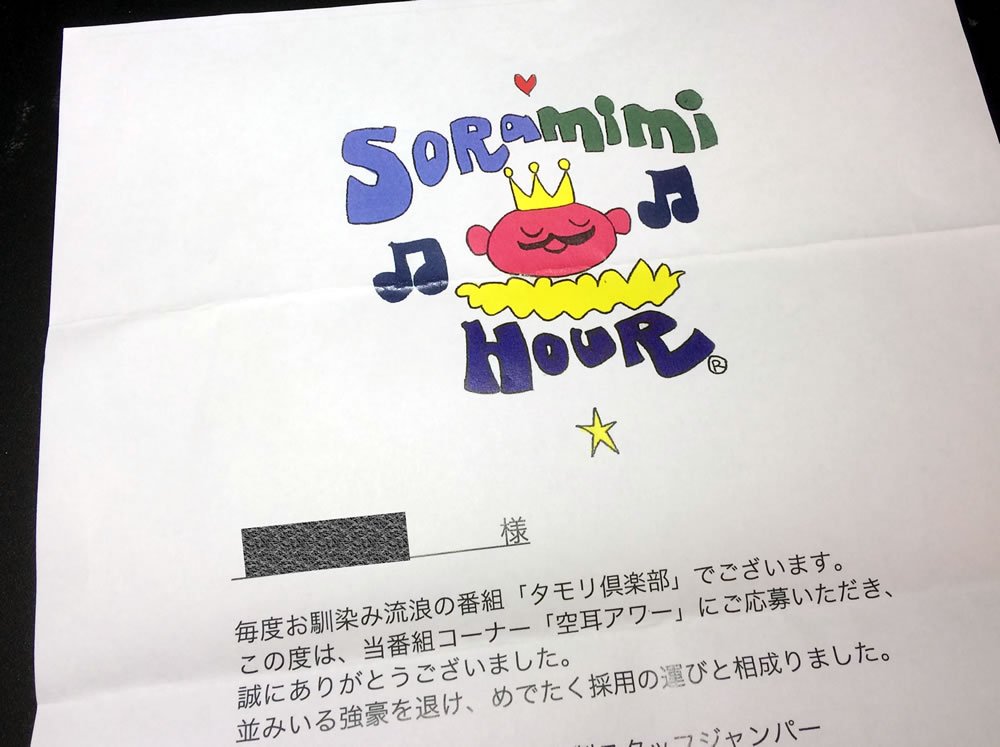 SORamimi
HOUR®
様
毎度お馴染み流浪の番組「タモリ倶楽部」でございます。
この度は、当番組コーナー「空耳アワー」にご応募いただき、
誠にありがとうございました。
並みいる強豪を退け、めでたく採用の運びと相成りました。
スタッフジャンパー